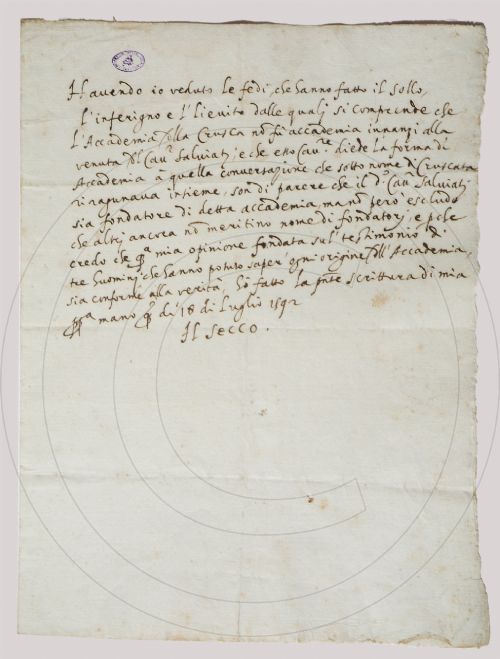 Havendo io veduto le fedi, che hanno fatto il sollo,
l'inferigno e l'lievito dalle quali si comprende che
l'Accademia della Crusca nõ fù accademia innanzi alla
venuta d'l Cau.r Saluiati, e che esso Cau.re diede la forma di
Accademia à quella conuersazione che sotto nome di Cruscata
si rapunaua insieme, son di parere che il d.o Cau.r Saluiati
sia fondatore di detta accademia, ma nõ però escludo
che altri ancora nõ meritino nome di fondatori, e pche
credo che q.a mia opinione fondata sul' testimonio di
tre huomini che hanno potuto saper' ogni origine dell'Accademia,
sia conforme alla verità, hò fatto la pñte scrittura di mia
mano q.o dì 18 di Luglio 1592
Il Secco.